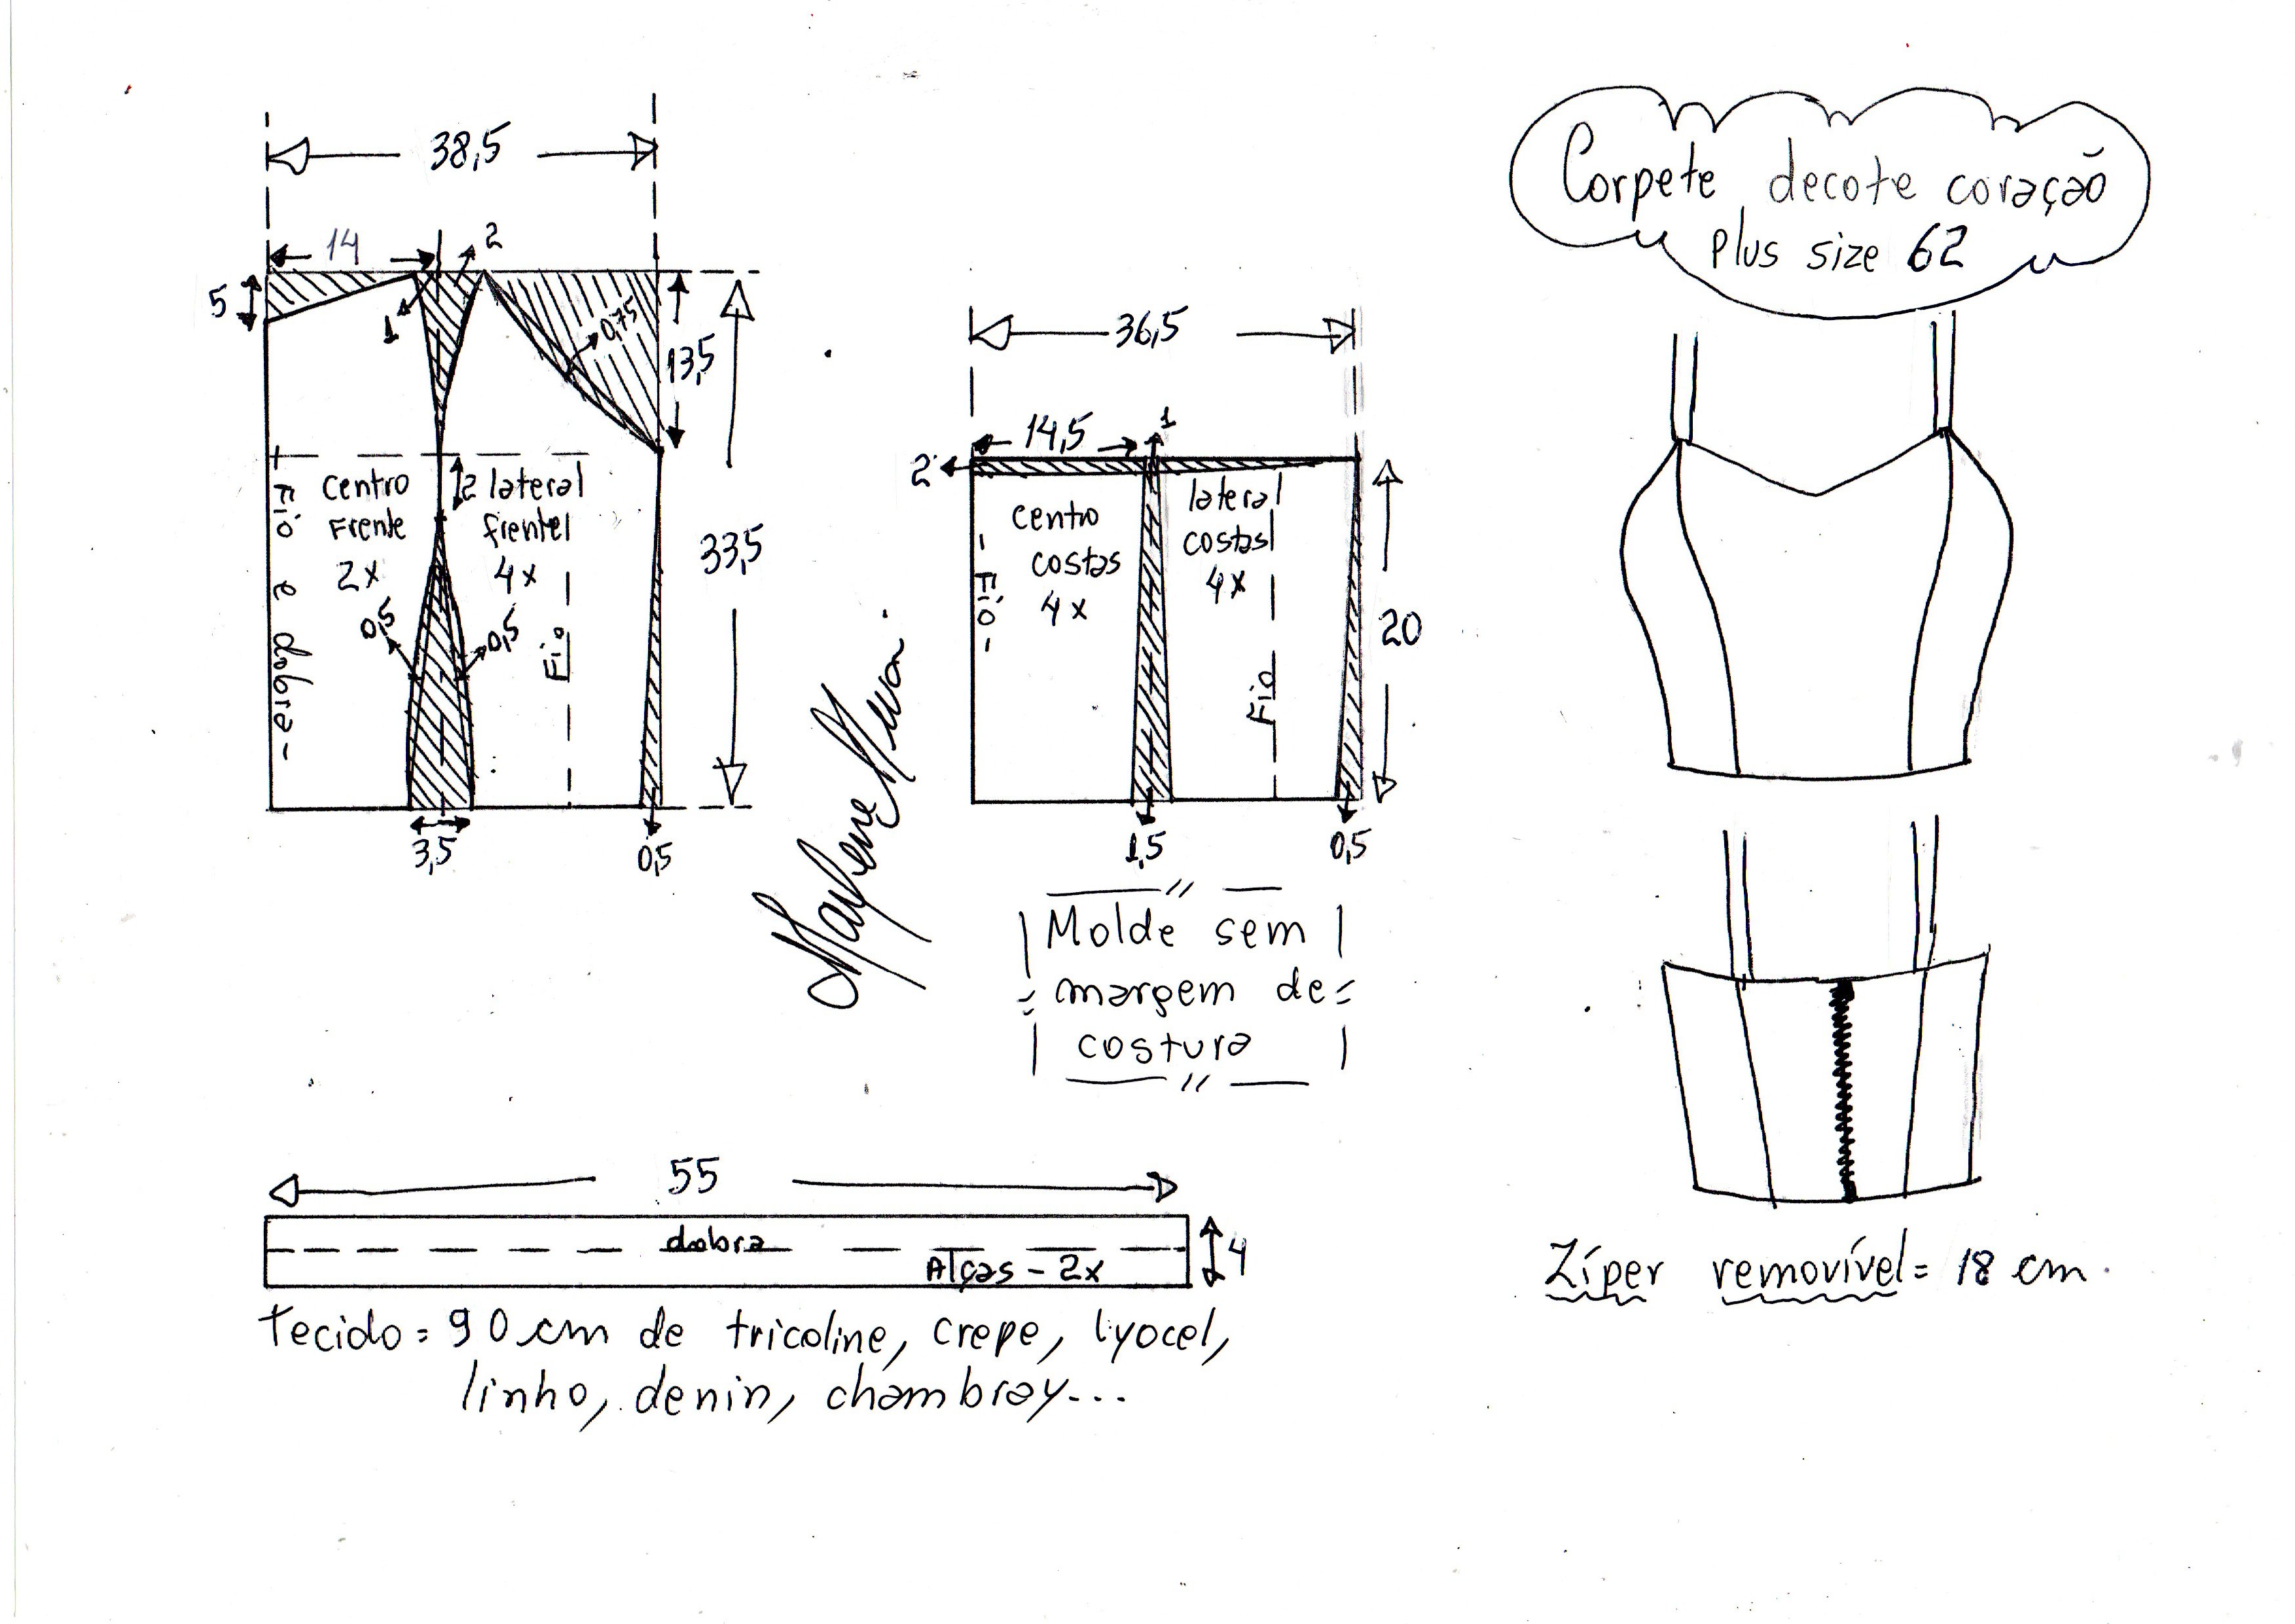 Corpete decote coração
plus size 62
38,5
14
2
5
1
0,75
13,5
33,5
Centro
Frente
2x
2
lateral
frente
4x
Fio e dobra
0,5
0,5
Fio
3,5
0,5
36,5
14,5
1
2
centro
costas
4x
lateral
costas
4x
Fio
Fio
20
1,5
0,5
Molde sem
margem de
costura
55
dobra
Alças - 2x
4
Tecido = 90 cm de tricoline, crepe, lyocel,
linho, denin, chambray...
Zíper removível = 18 cm.